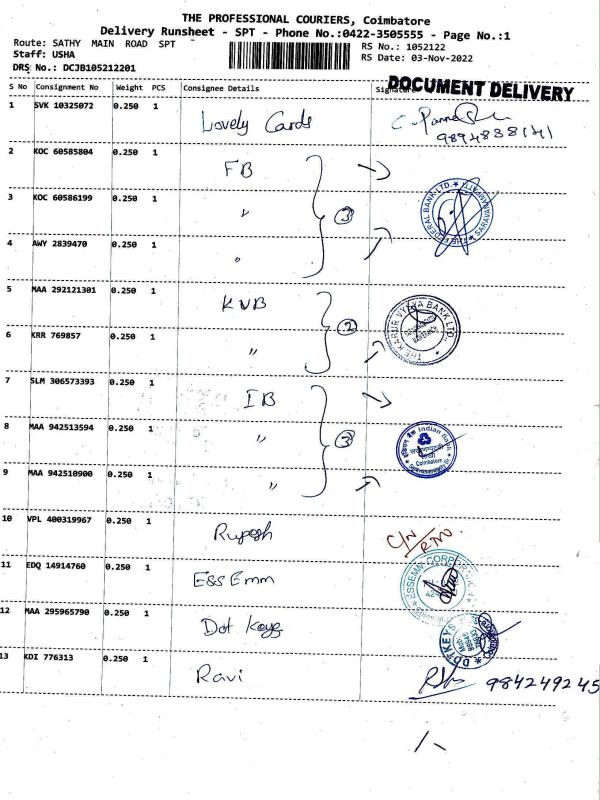 THE PROFESSIONAL COURIERS, Coimbatore
Delivery Runsheet - SPT - Phone No.:0422-3505555 - Page No.:1
Route: SATHY MAIN ROAD SPT
RS No.: 1052122
Staff: USHA
RS Date: 03-Nov-2022
DRS No.: DCJB105212201
DOCUMENT DELIVERY
S No Consignment No Weight PCS Consignee Details Signature
1 SVK 10325072 0.250 1 Lovely Cards
9894838141
2 KOC 60585804 0.250 1 FB
3 KOC 60586199 0.250 1 " 3
THE FEDERAL BANK LTD.
4 AWY 2839470 0.250 1 "
5 MAA 292121301 0.250 1 KVB
THE KARUR VYSYA BANK LTD.
2
6 KRR 769857 0.250 1 "
7 SLM 306573393 0.250 1 IB
8 MAA 942513594 0.250 1 " 3
इंडियन बैंक Indian Bank
Coimbatore
9 MAA 942510900 0.250 1 "
10 VPL 400319967 0.250 1 Rupesh
C/N
R/NO
11 EDQ 14914760 0.250 1 Ess Emm
ESSEMM CORPORATION
12 MAA 295965790 0.250 1 Dot Keys
DOT KEYS
13 KDI 776313 0.250 1 Ravi
984249245